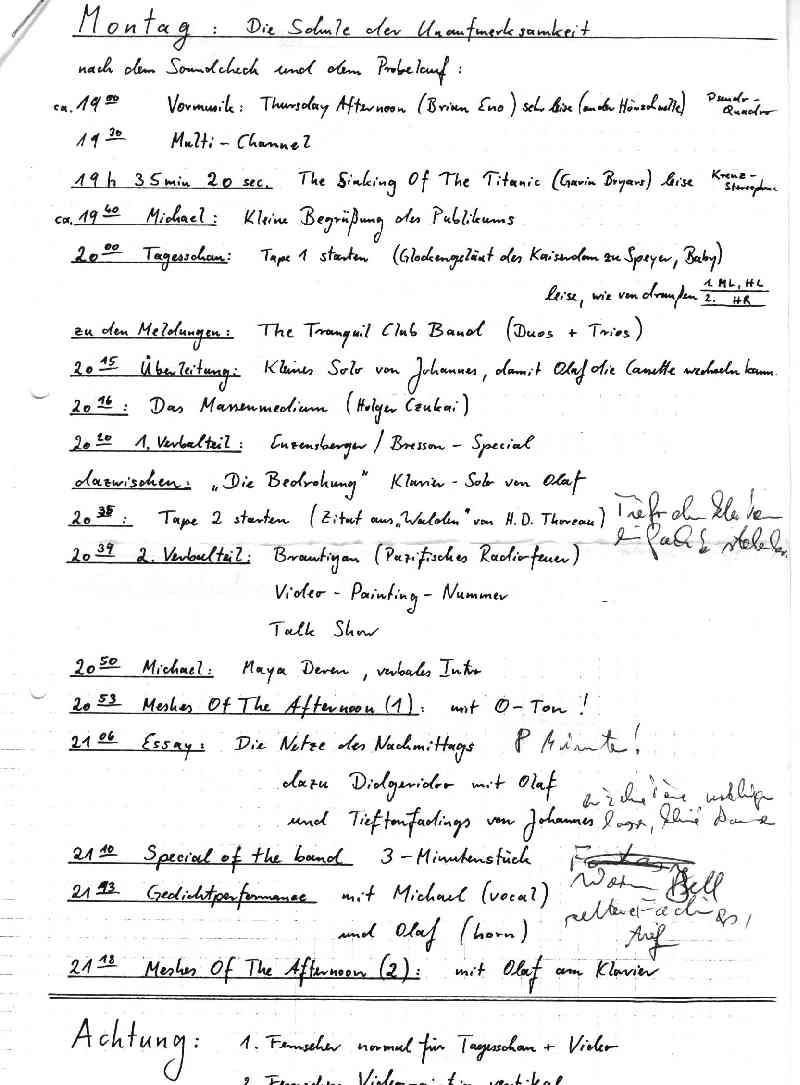 Montag : Die Schule der Unaufmerksamkeit
nach dem Soundcheck und dem Probelauf :
ca. 19 00 Vormusik : Thursday Afternoon (Brian Eno) sehr leise (an der Hörschwelle) Pseudo-
Quadro
19 30 Multi - Channel
19 h 35 min 20 sec. The Sinking Of The Titanic (Gavin Bryars) leise Kreuz-
Stereophonie
ca. 19 40 Michael : Kleine Begrüßung des Publikums
20 00 Tagesschau : Tape 1 starten (Glockengeläut des Kaiserdom zu Speyer, Baby)
leise, wie von draußen 1. ML, HL
2. HR
zu den Meldungen : The Tranquil Club Band (Duos + Trios)
20 15 Überleitung : Kleines Solo von Johannes, damit Olaf die Cassette wechseln kann.
20 16 : Das Massenmedium (Holger Czukai)
20 20 1. Verbalteil : Enzensberger / Bresson - Special
dazwischen : „Die Bedrohung" Klavier - Solo von Olaf
20 38 : Tape 2 starten (Zitat aus „Walden" von H. D. Thoreau)
20 39 2. Verbalteil : Brautigan (Pazifisches Radiofeuer)
Video - Painting - Nummer
Talk Show
20 50 Michael : Maya Deren, verbales Intro
20 53 Meshes Of The Afternoon (1) : mit O-Ton !
21 06 Essay : Die Netze des Nachmittags 8 Minuten !
dazu Didgeridoo mit Olaf
und Tieftonfadings von Johannes
21 10 Special of the band 3 - Minutenstück
21 13 Gedichtperformance mit Michael (vocal)
und Olaf (horn)
21 18 Meshes Of The Afternoon (2) : mit Olaf am Klavier
Achtung : 1. Fernseher normal für Tagesschau + Video
2. Fernseher